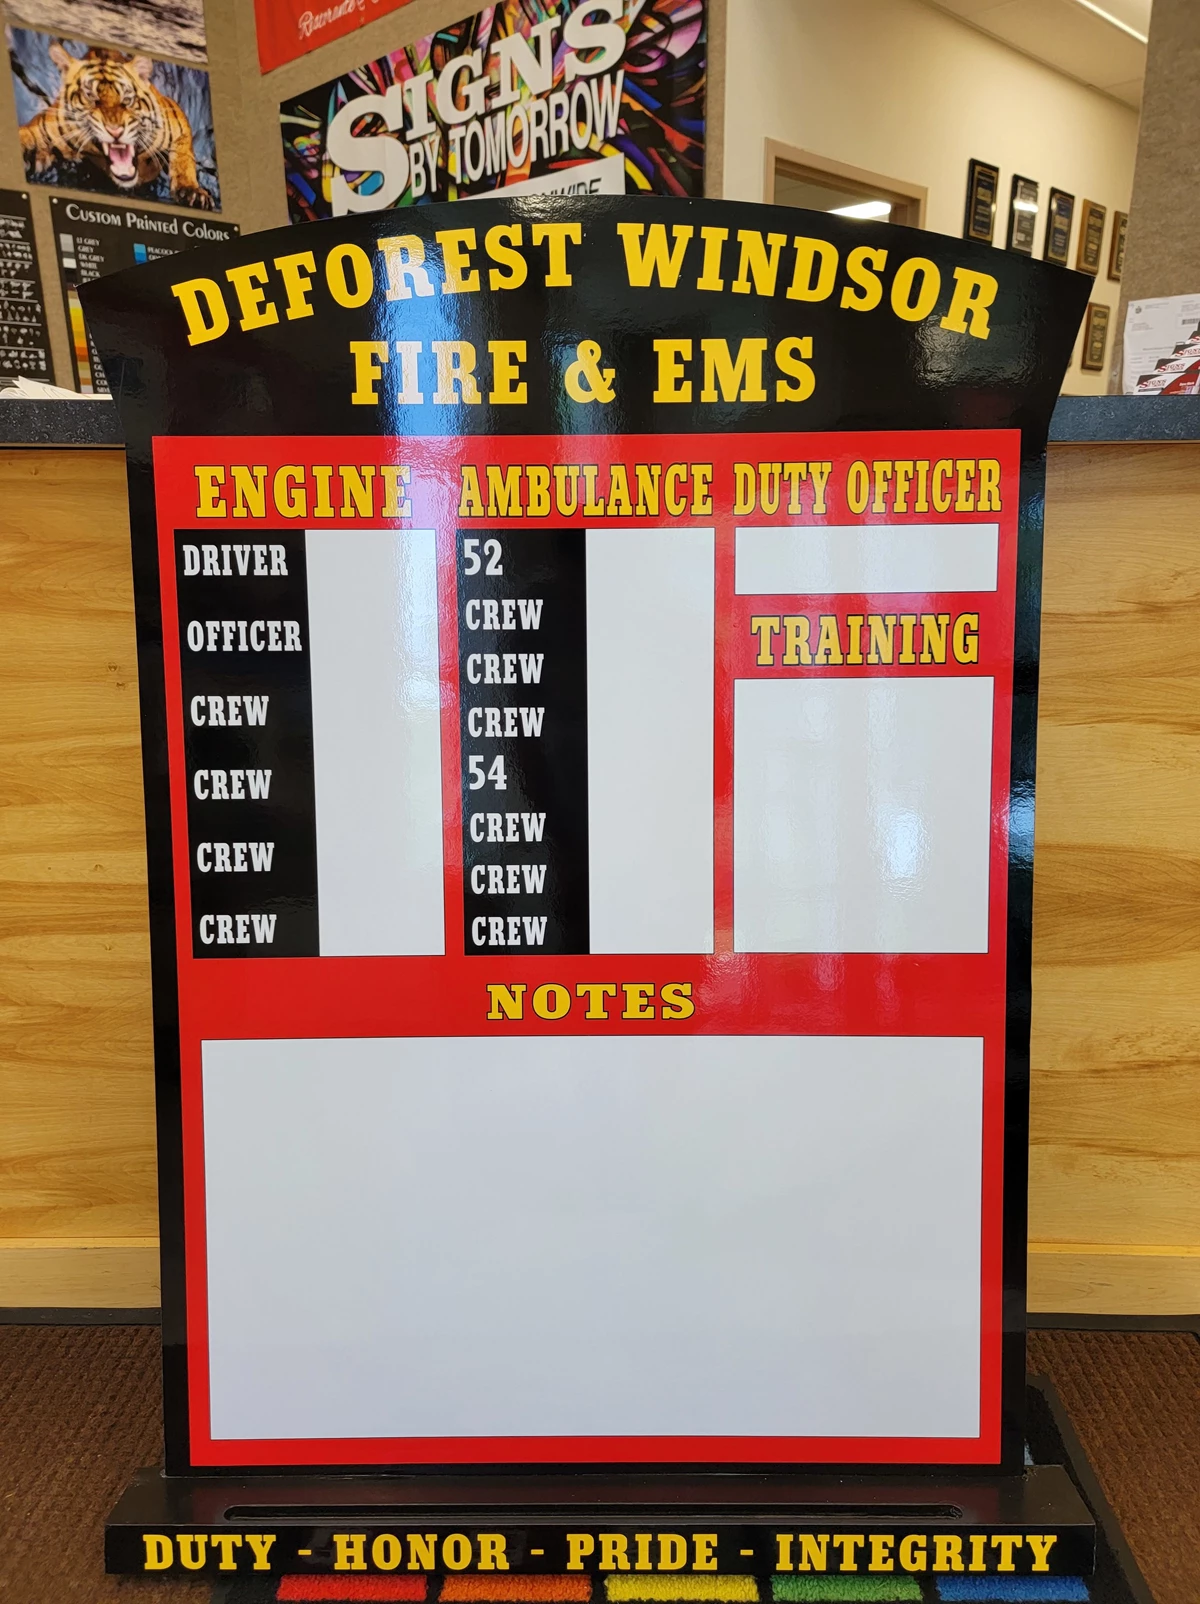 Ristorante
SIGNS
BY TOMORROW
CUSTOM PRINTED COLORS
LT GREY
GREY
DK GREY
WHITE
BLACK
DEFOREST WINDSOR
FIRE & EMS
ENGINE
DRIVER
OFFICER
CREW
CREW
CREW
CREW
AMBULANCE
52
CREW
CREW
CREW
54
CREW
CREW
CREW
DUTY OFFICER
TRAINING
NOTES
DUTY - HONOR - PRIDE - INTEGRITY